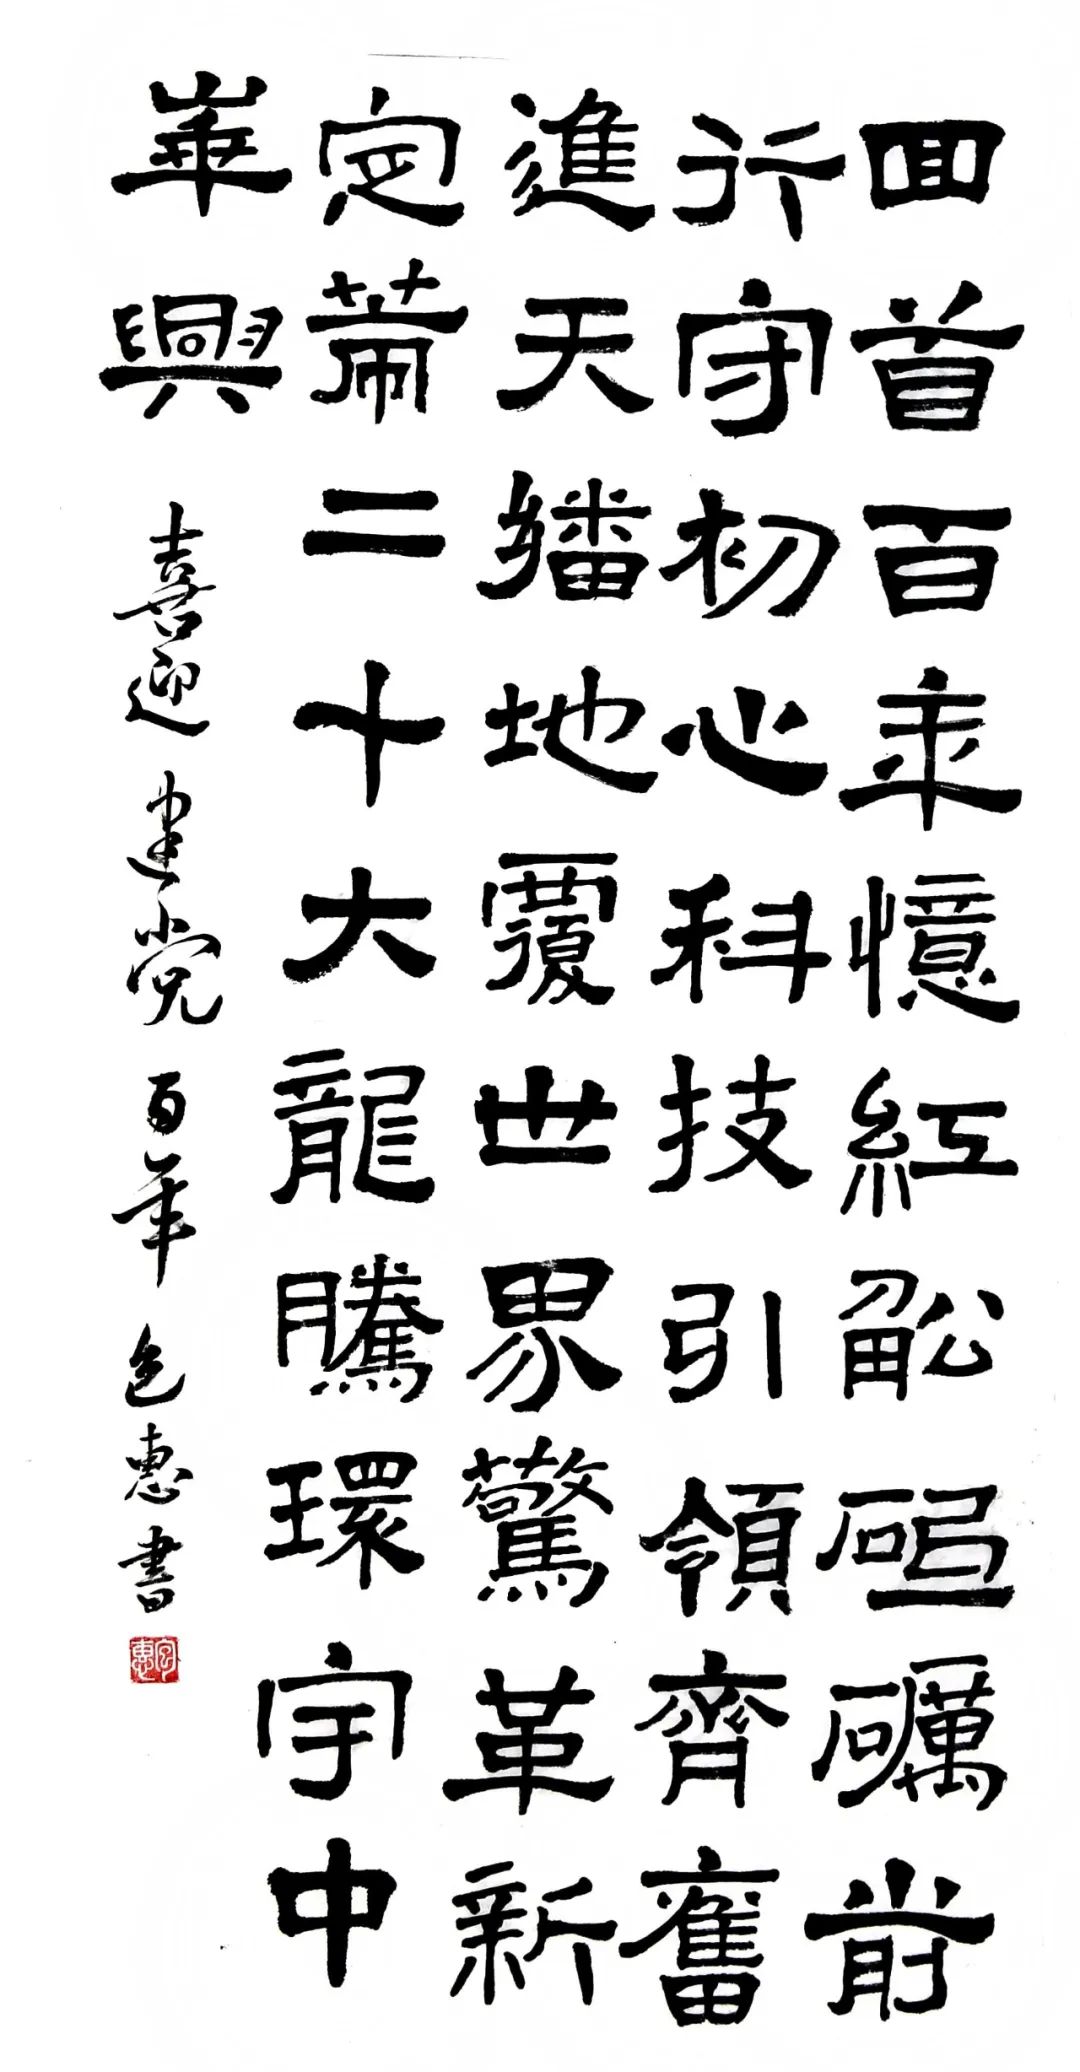 回首百年憶紅舩砥礪前
行守初心科技引領齊奮
進天繙地覆世界驚革新
定帶二十大龍騰環宇中
華興
喜迎建党百年 惠書